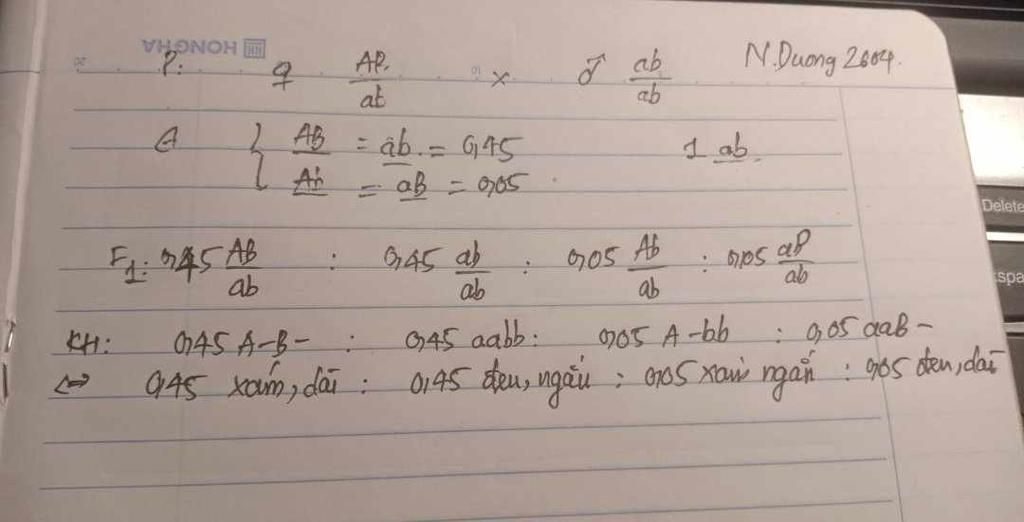 HONGHA
P: ♀ AB/ab × ♂ ab/ab N.Duong 2604.
G { AB = ab = 0,45 1 ab.
Ab = aB = 0,05
F1: 0,45 AB/ab : 0,45 ab/ab : 0,05 Ab/ab : 0,05 aB/ab
KH: 0,45 A-B- : 0,45 aabb : 0,05 A-bb : 0,05 aaB-
<=> 0,45 xám, dài : 0,45 đen, ngắn : 0,05 xám ngắn : 0,05 đen, dài
Delete
spa